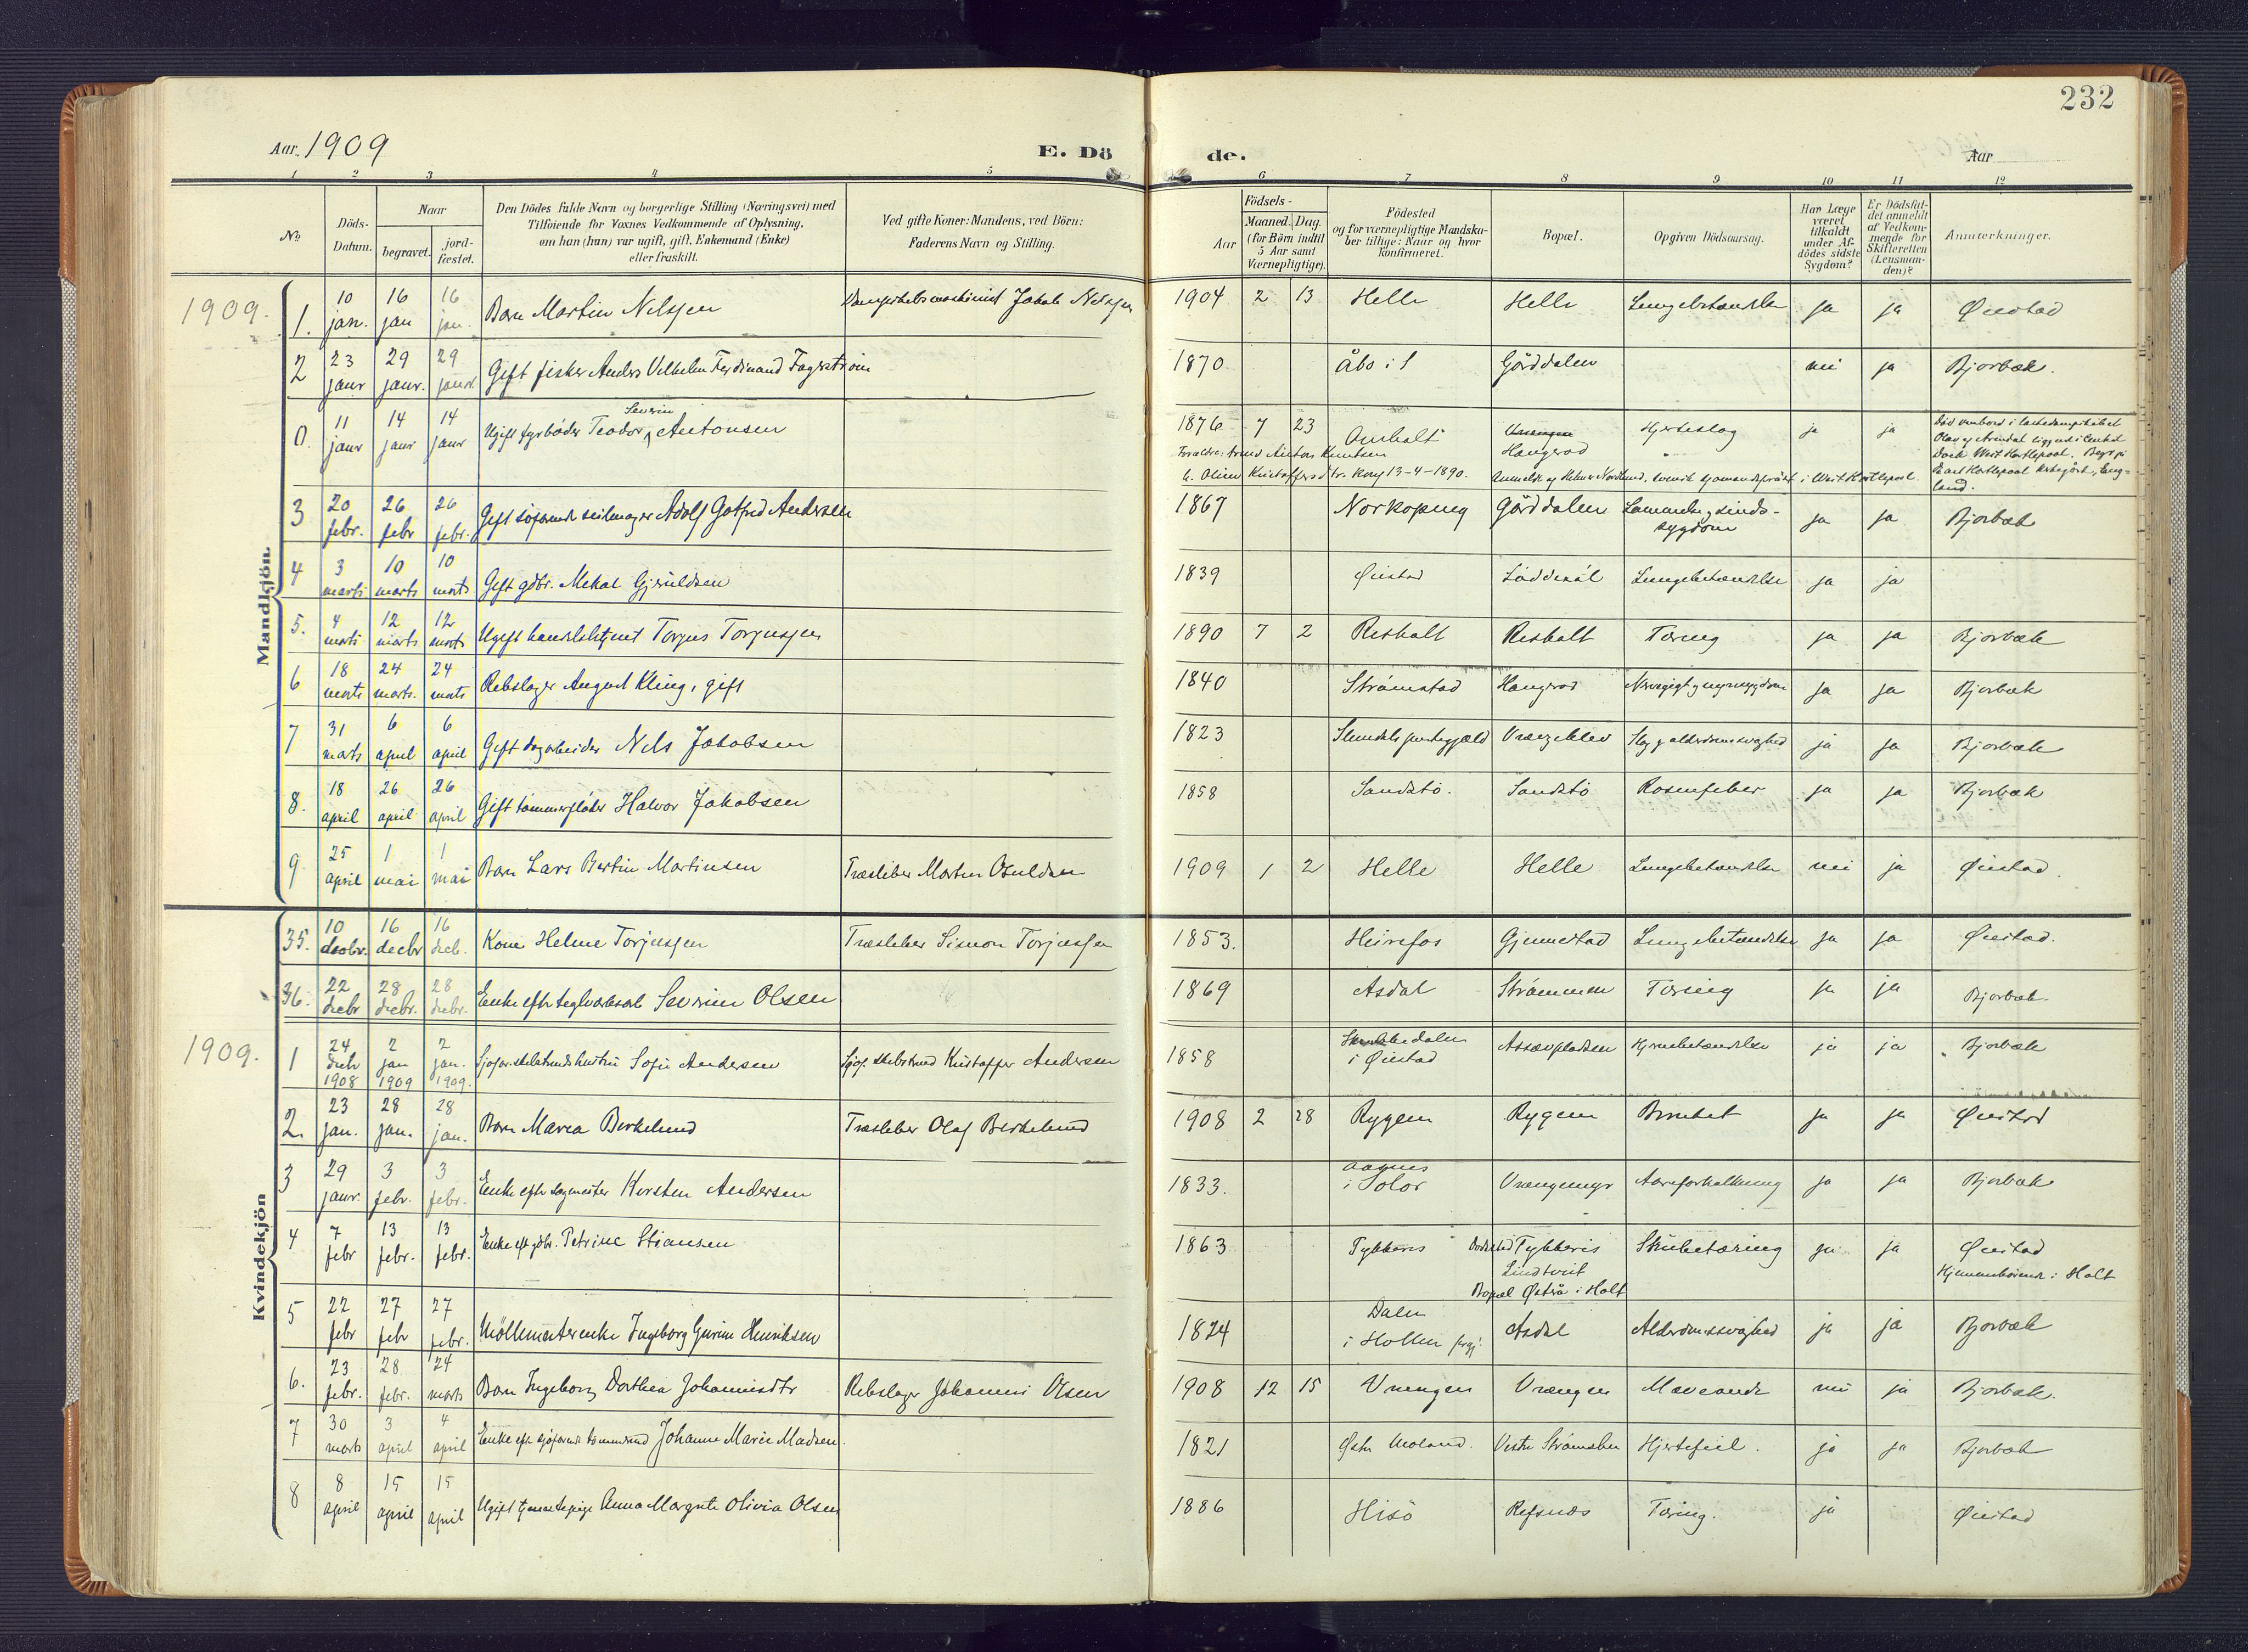 232
Aar 1909
E. Dö
de.
Aar
1 2 3 4 5 6 7 8 9 10 11 12
No
Döds-Datum.
Naar
begravet.
jord-fæstet.
Den Dödes fulde Navn og borgerlige Stilling (Næringsvei) med
Tilföiende for Voxnes Vedkommende af Oplysning,
om han (hun) var ugift, gift, Enkemand (Enke)
eller fraskilt.
Ved gifte Koner: Mandens, ved Börn:
Faderens Navn og Stilling.
Födsels-
Aar
Maaned. Dag.
(for Börn indtil
5 Aar samt
Værnepligtige).
Födested
og for værnepligtige Mandska-
ber tillige: Naar og hvor
konfirmeret.
Bopæl.
Opgiven Dödsaarsag.
Har Læge
været
tilkaldt
under Af-
dödes sidste
Sygdom?
Er Dödsfal-
det anmeldt
af Vedkom-
mende for
Skifteretten
(Lensman-
den)?
Anmærkninger.
Mandkjön
1909.
1. 10 jan. 16 jan 16 jan. Barn Martin Nilssen Jakob Nilssen 1904 2 13 Helle Helle Lungebetændelse ja ja Øiestad
2 23 janr 29 janr. 29 janr Gift fisker Anders Vilhelm Ferdinand Fagerström 1870 Åbo i Gårddalen nei ja Bjorbæk.
0. 11 janr 14 janr 14 janr Ugift fyrböder Teodor Severin Antonsen 1876 7 23 Hangerod Hjerteslag ja ja
Knutsen
Kristoffersdtr. 13-4-1890. svensk sjömandspræst i West Hartlepool
Dock West Hartlepool.
East Hartlepool kirkegård, Eng-
land.
3 20 febr. 26 febr 26 febr. Gift Adolf Gotfred Andersen 1867 Norkoping Gårddalen sinds-
sygdom ja ja Bjorbæk
4 3 marts 10 marts 10 marts Gift gdbr. Mikal Gjeruldsen 1839 Øiestad Løddesøl Lungebetændelse ja ja
5. 4 marts 12 marts 12 marts Ugift Torjus Torjussen 1890 7 2 Risholt Risholt Tæring ja ja Bjorbæk
6 18 marts 24 marts. 24 marts Rebslager August Kling, gift 1840 Strömstad Hangerod ja ja Bjorbæk
7 31 marts 6 april 6 april Gift dagarbeider Nils Jakobsen 1823 ja ja Bjorbæk
8. 18 april 26 april 26 april Gift tömmerfløder Halvor Jakobsen 1858 Sandstö. Sandstö Rosenfeber ja ja Bjorbæk
9 25 april 1 mai 1 mai Barn Lars Bertin Martinsen Træsliber Martin Osuldsen 1909 1 2 Helle Helle Lungebetændelse nei ja Øiestad.
Kvindekjön
35. 10 decbr. 16 decbr 16 decb. Kone Helene Torjussen Træsliber Simon Torjussen 1853. Heirefos Gjennestad Lungebetændelse ja ja Øiestad.
36. 22 decbr 28 decbr. 28 decbr. Enke efter Severine Olsen 1869 Asdal Strömmen Tæring ja ja Bjorbæk.
1909.
1 24 decb 1908 2 jan 1909 2 jan. 1909. Sofie Andersen Kristoffer Andersen 1858
i Øiestad Hjernebetændelse ja ja Bjorbæk
2. 23 jan. 28 jan. 28 jan. Barn Maria Berkelund Træsliber Olaf Berkelund 1908 2 28 Rygene Rygene Bronchet ja ja Øiestad
3 29 janr. 3 febr. 3 febr. Enke efter Kirsten Andersen 1833. Aasnes
i Solør Vrengmyr Aareforkalkning ja ja Bjorbæk
4 7 febr 13 febr. 13 febr. Enke eft gdbr. Petrine Stiansen 1863 Tykkeris Dödssted Tykkeris
Lindtveit
Bopæl Østrå i Holt ja ja Øiestad
Hjemmehörende i Holt
5 22 febr 27 febr 27 febr. Möllmesterenke Ingeborg Gurine Henriksen 1824 Dalen
i Hollen prgj. Asdal Alderdomssvaghed ja ja Bjorbæk
6. 23 febr. 28 febr. 24 marts Barn Ingeborg Dorthea Johannesdtr Rebslager Johannes Olsen 1908 12 15 Vrengen Vrængen Maveonde nei ja Bjorbæk.
7 30 marts 3 april 4 april Enke eft. sjöfarende tömmermd Johanne Marie Madsen. 1821 Østr Moland. Vestre Strömsbu Hjertefeil. ja ja Bjorbæk
8 8 april 15 april 15 april Ugift tjenestepige Anna Margrete Olivia Olsen 1886 Hisö Refsnæs Tæring. ja Øiestad